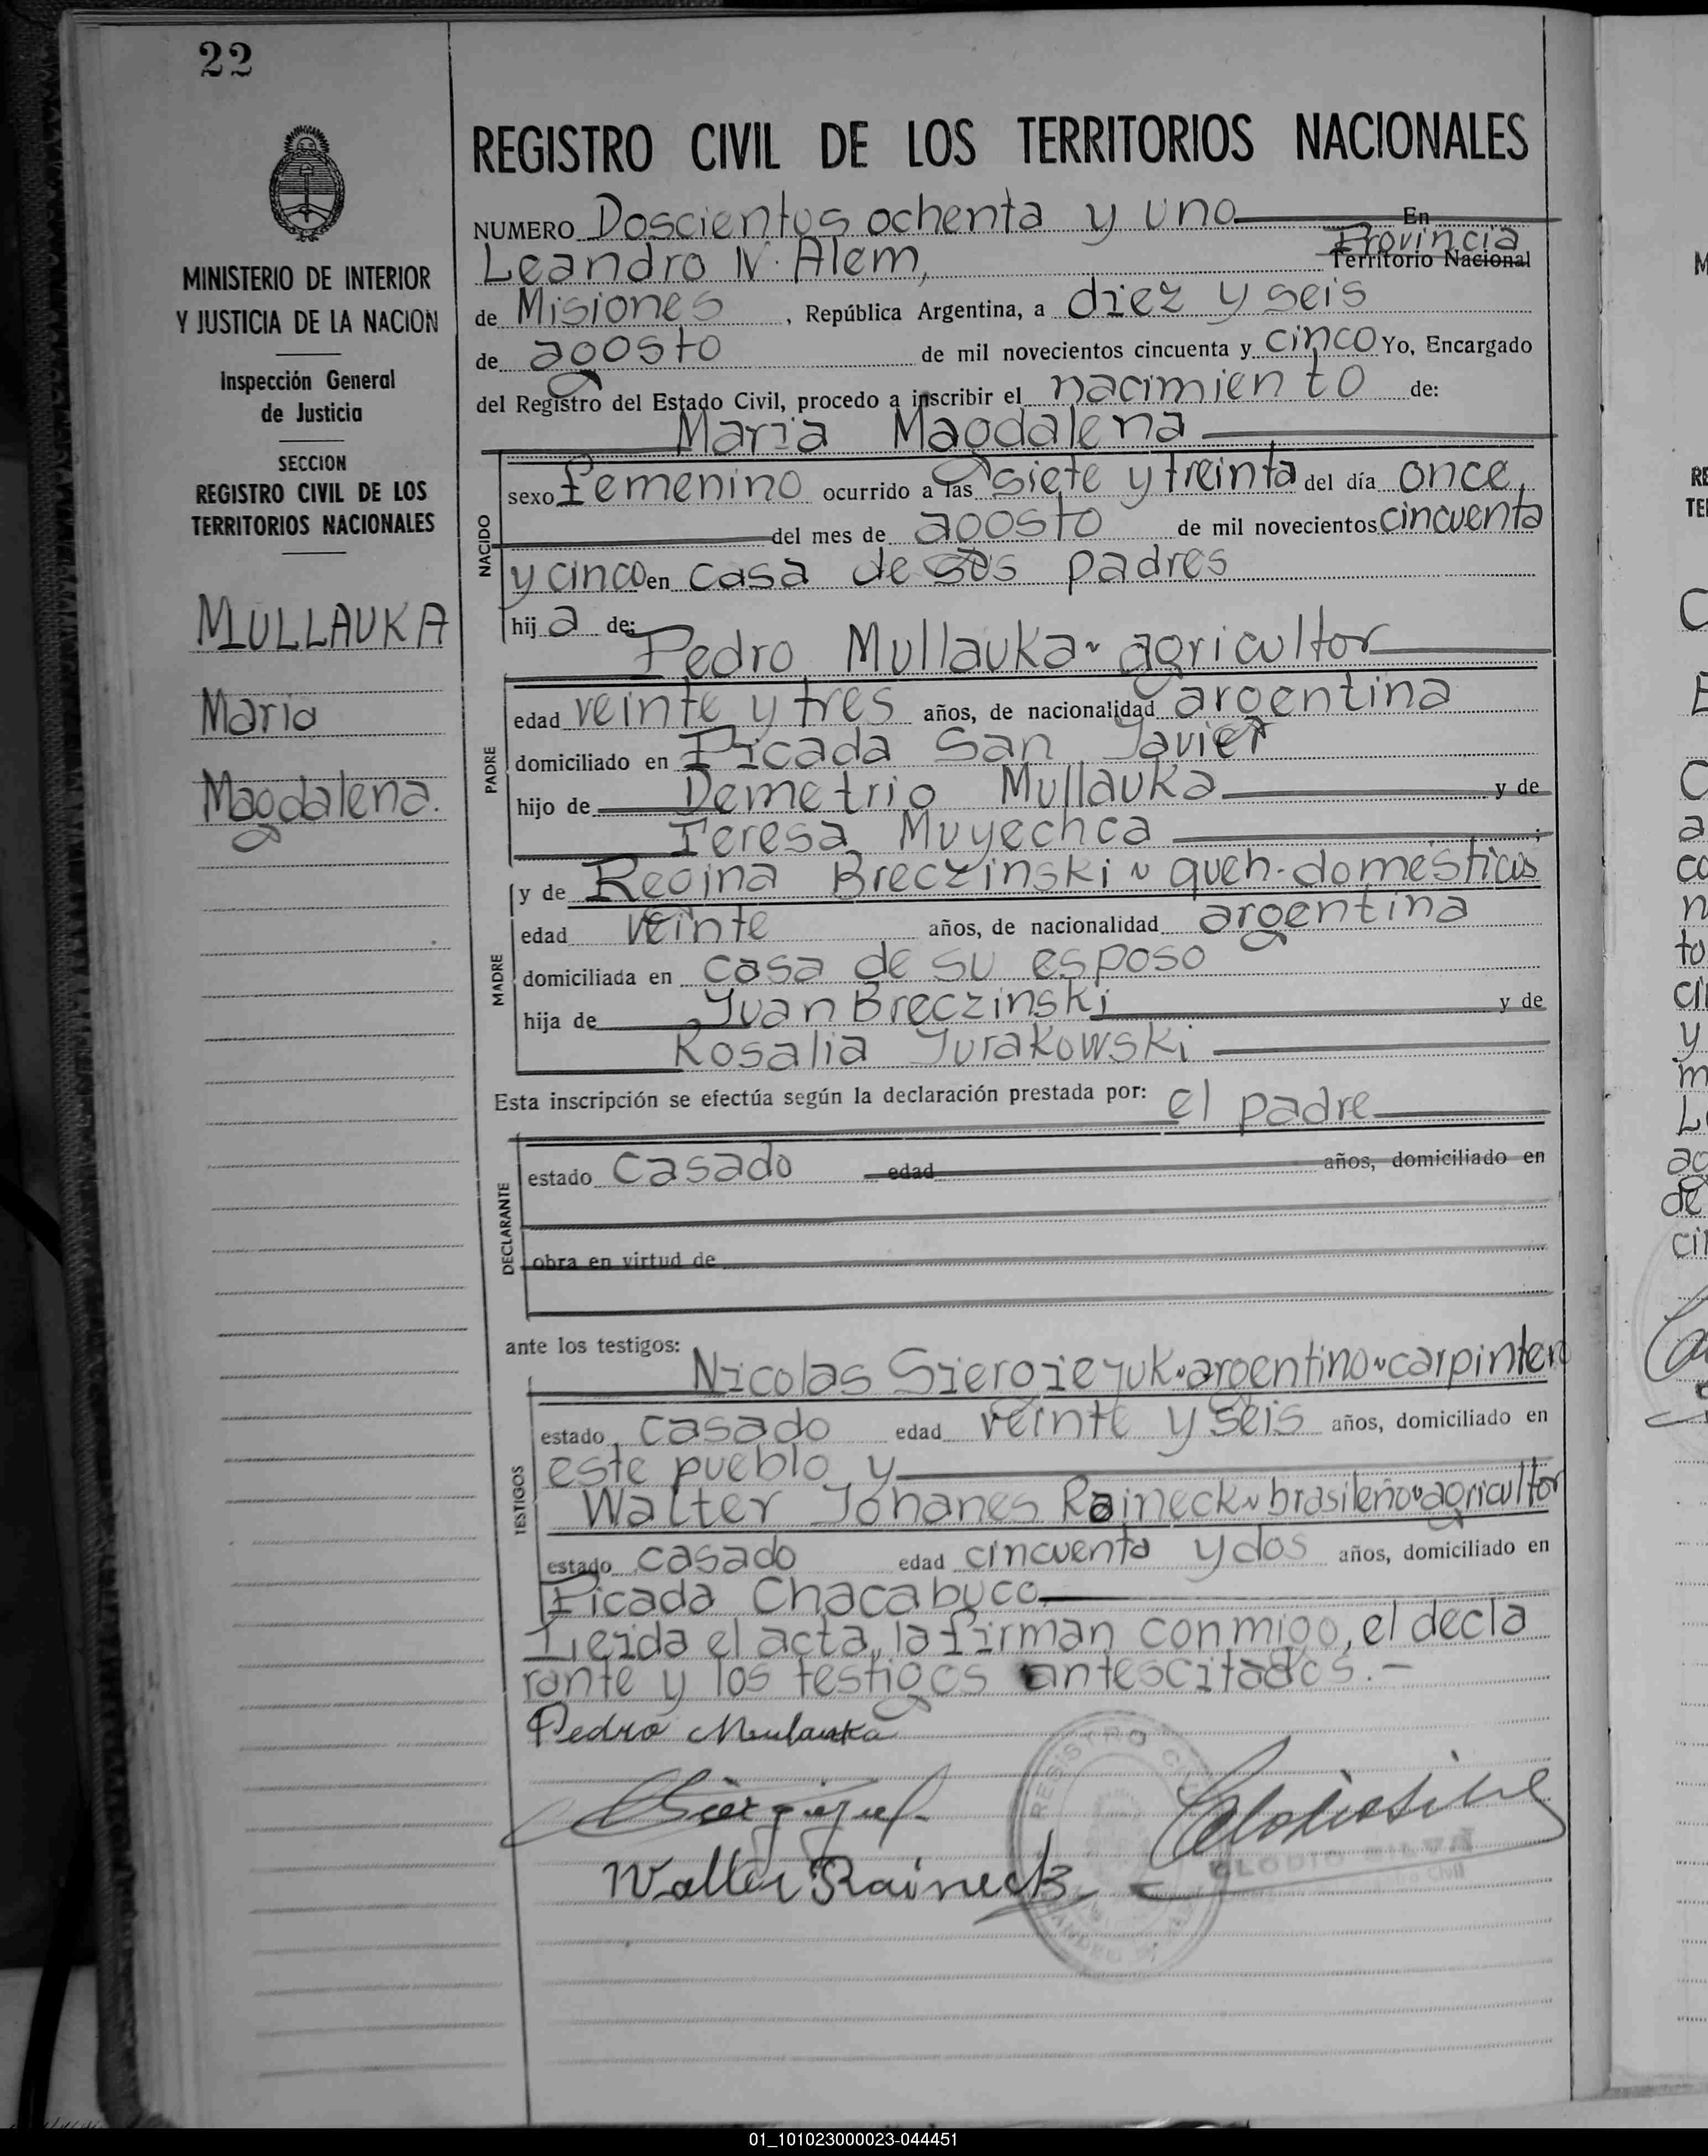 22
MINISTERIO DE INTERIOR
Y JUSTICIA DE LA NACION
Inspección General
de Justicia
SECCION
REGISTRO CIVIL DE LOS
TERRITORIOS NACIONALES
MULLAUKA
Maria
Magdalena.
REGISTRO CIVIL DE LOS TERRITORIOS NACIONALES
NUMERO Doscientos ochenta y uno En
Provincia
Leandro N. Alem, Territorio Nacional
de Misiones, República Argentina, a diez y seis
de agosto de mil novecientos cincuenta y cinco Yo, Encargado
del Registro del Estado Civil, procedo a inscribir el nacimiento de:
Maria Magdalena
NACIDO
sexo femenino ocurrido a las siete y treinta del día once,
del mes de agosto de mil novecientos cincuenta
y cinco en casa de sus padres
hij a de:
Pedro Mullauka ~ agricultor
PADRE
edad veinte y tres años, de nacionalidad argentina
domiciliado en Picada San Javier
hijo de Demetrio Mullauka y de
Teresa Muyechca ;
MADRE
y de Regina Breczinski ~ queh. domésticos
edad veinte años, de nacionalidad argentina
domiciliada en casa de su esposo
hija de Juan Breczinski y de
Rosalia Jurakowski
Esta inscripción se efectúa según la declaración prestada por: el padre
DECLARANTE
estado casado edad años, domiciliado en
obra en virtud de
ante los testigos:
Nicolas Siergiejuk ~ argentino ~ carpintero
TESTIGOS
estado casado edad veinte y seis años, domiciliado en
este pueblo y
Walter Johanes Raineck ~ brasileño ~ agricultor
estado casado edad cincuenta y dos años, domiciliado en
Picada Chacabuco.
Leida el acta, la firman conmigo, el decla
rante y los testigos antescitados.-
Pedro Mulauka
Walter Raineck
REGISTRO
CLODIO SILVA
01_101023000023-044451